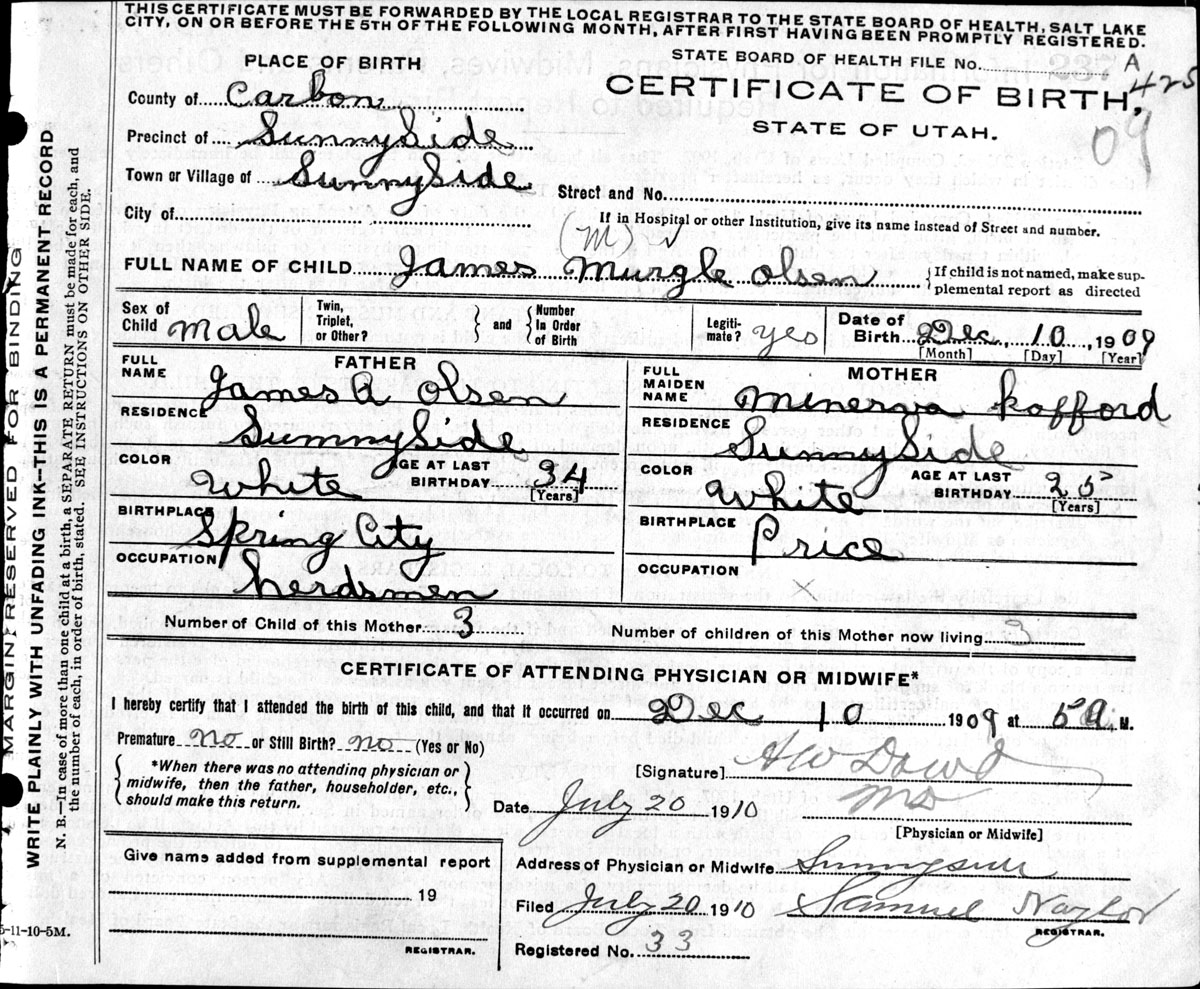 THIS CERTIFICATE MUST BE FORWARDED BY THE LOCAL REGISTRAR TO THE STATE BOARD OF HEALTH, SALT LAKE
CITY, ON OR BEFORE THE 5TH OF THE FOLLOWING MONTH, AFTER FIRST HAVING BEEN PROMPTLY REGISTERED.
PLACE OF BIRTH
STATE BOARD OF HEALTH FILE No. 237 A
425
County of Carbon
CERTIFICATE OF BIRTH,
Precinct of SunnySide
STATE OF UTAH.
09
Town or Village of SunnySide Street and No.
City of If in Hospital or other Institution, give its name instead of Street and number.
(M)
FULL NAME OF CHILD James Murgle Olsen {If child is not named, make sup-
plemental report as directed
Sex of Child Male Twin, Triplet, or Other? } and { Number In Order of Birth Legiti-mate? yes Date of Birth Dec, 10, 1909
[Month] [Day] [Year]
FATHER
FULL NAME James A Olsen
RESIDENCE SunnySide
COLOR White AGE AT LAST BIRTHDAY 34
[Years]
BIRTHPLACE Spring City
OCCUPATION herdsmen
MOTHER
FULL MAIDEN NAME Minerva Kofford
RESIDENCE SunnySide
COLOR White AGE AT LAST BIRTHDAY 25
[Years]
BIRTHPLACE Price
OCCUPATION
Number of Child of this Mother 3 Number of children of this Mother now living 3
CERTIFICATE OF ATTENDING PHYSICIAN OR MIDWIFE*
I hereby certify that I attended the birth of this child, and that it occurred on Dec 10 1909 at 5 a. M.
Premature no or Still Birth? no (Yes or No)
*When there was no attending physician or
midwife, then the father, householder, etc.,
should make this return.
[Signature] HW Dowd
MD
Date July 20 1910
[Physician or Midwife]
Give name added from supplemental report
19
REGISTRAR.
Address of Physician or Midwife Sunnyside
Filed July 20 1910 Samuel Naylor
REGISTRAR.
Registered No. 33
5-11-10-5M.
MARGIN RESERVED FOR BINDING
WRITE PLAINLY WITH UNFADING INK—THIS IS A PERMANENT RECORD
N. B.—In case of more than one child at a birth, a SEPARATE RETURN must be made for each, and
the number of each, in order of birth, stated. SEE INSTRUCTIONS ON OTHER SIDE.